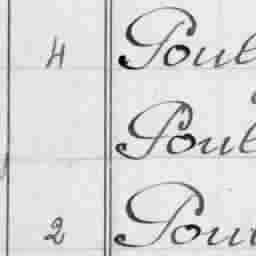 4 Poul
Poul
2 Poul